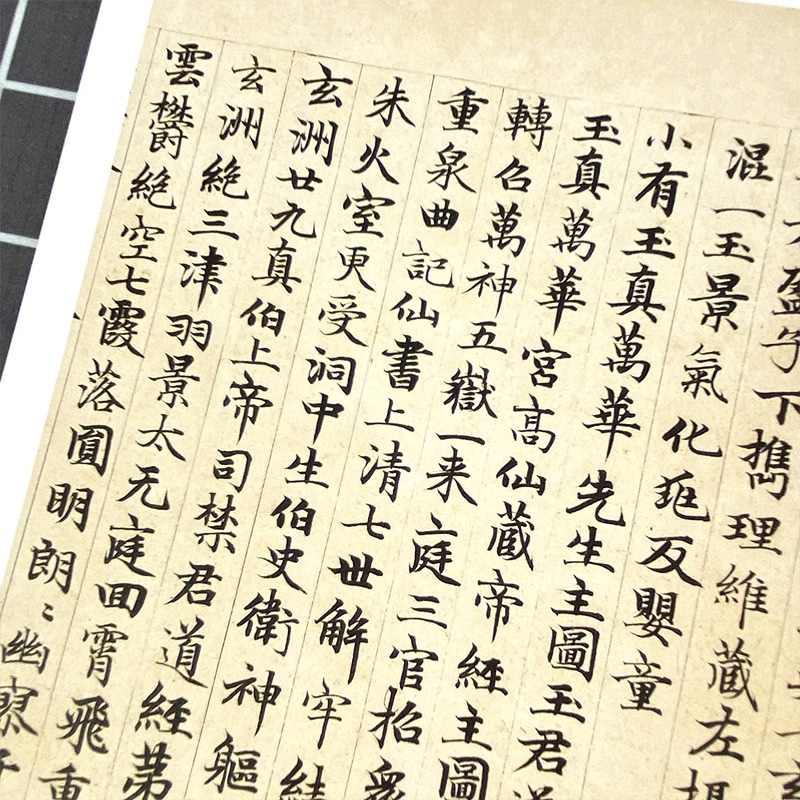 盈子下攜理維藏左提
混一玉景氣化反嬰童
小有玉真萬華先生主圖玉君道
玉真萬華宮高仙藏帝經主圖
轉召萬神五嶽一来庭三官招衆
重泉曲記仙書上清七世解牢結
朱火室更受洞中生伯史衛神軀
玄洲廿九真伯上帝司禁君道經苐
玄洲絶三津羽景太无庭回霄飛重
雲欝絶空七霞落圓明朗〻幽